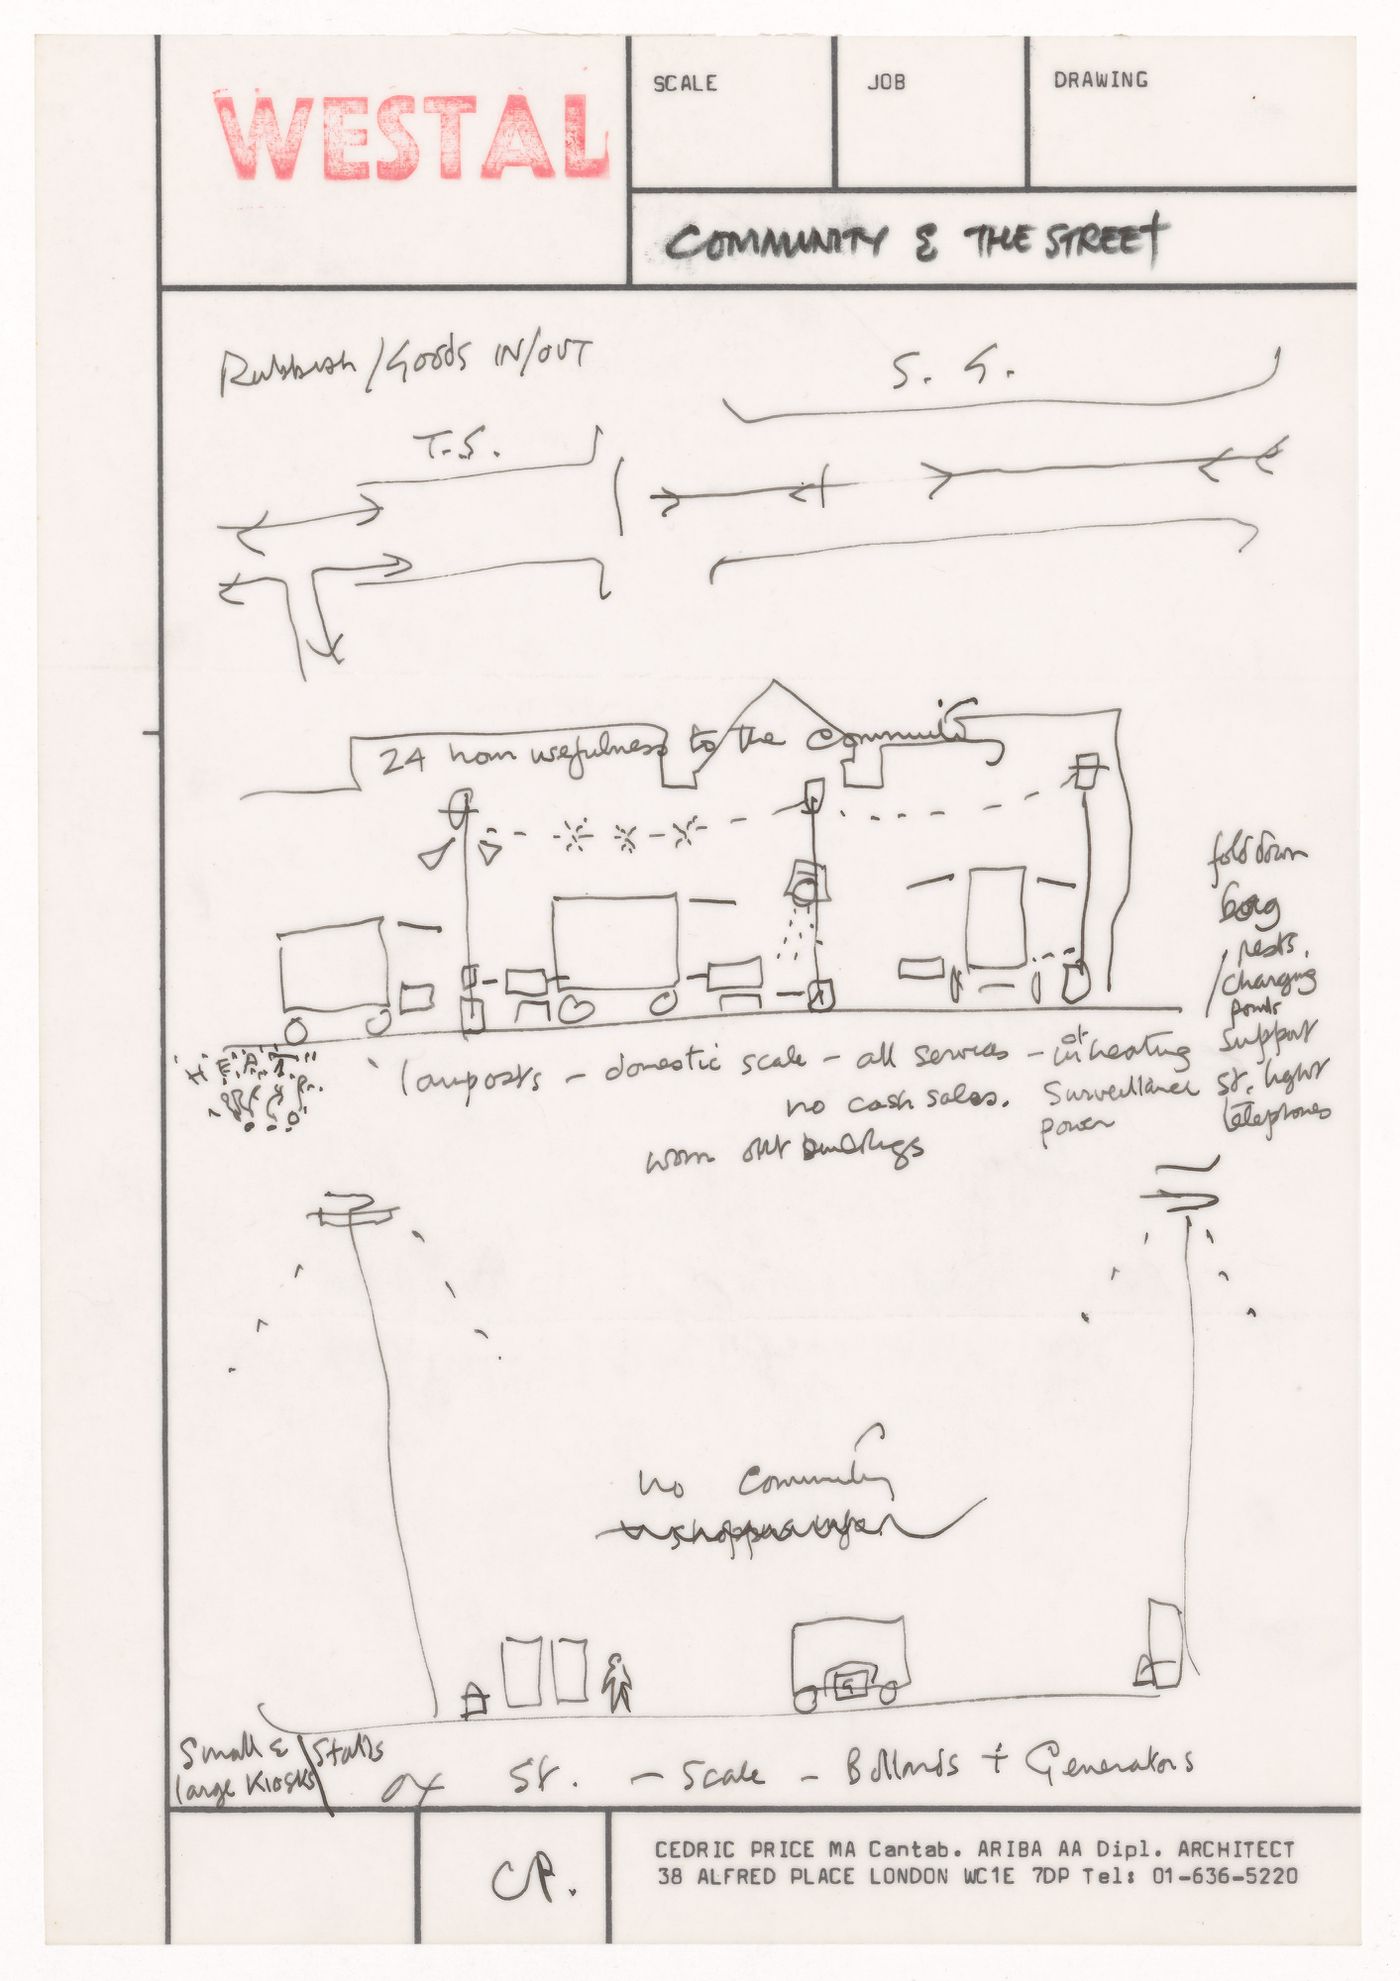 WESTAL
SCALE
JOB
DRAWING
COMMUNITY & THE STREET
Rubbish / Goods IN/OUT
S. G.
T.S.
24 hour usefulness to the community
fold down
rests.
/ charging
points
support
St. light
telephones
HEAT
lamposts - domestic scale - all services - heating
no cash sales. Surveillance
power
worn out buildings
no community
Small & / Stalls
large Kiosks
Ox St. - Scale - Bollards + Generators
CP.
CEDRIC PRICE MA Cantab. ARIBA AA Dipl. ARCHITECT
38 ALFRED PLACE LONDON WC1E 7DP Tel: 01-636-5220